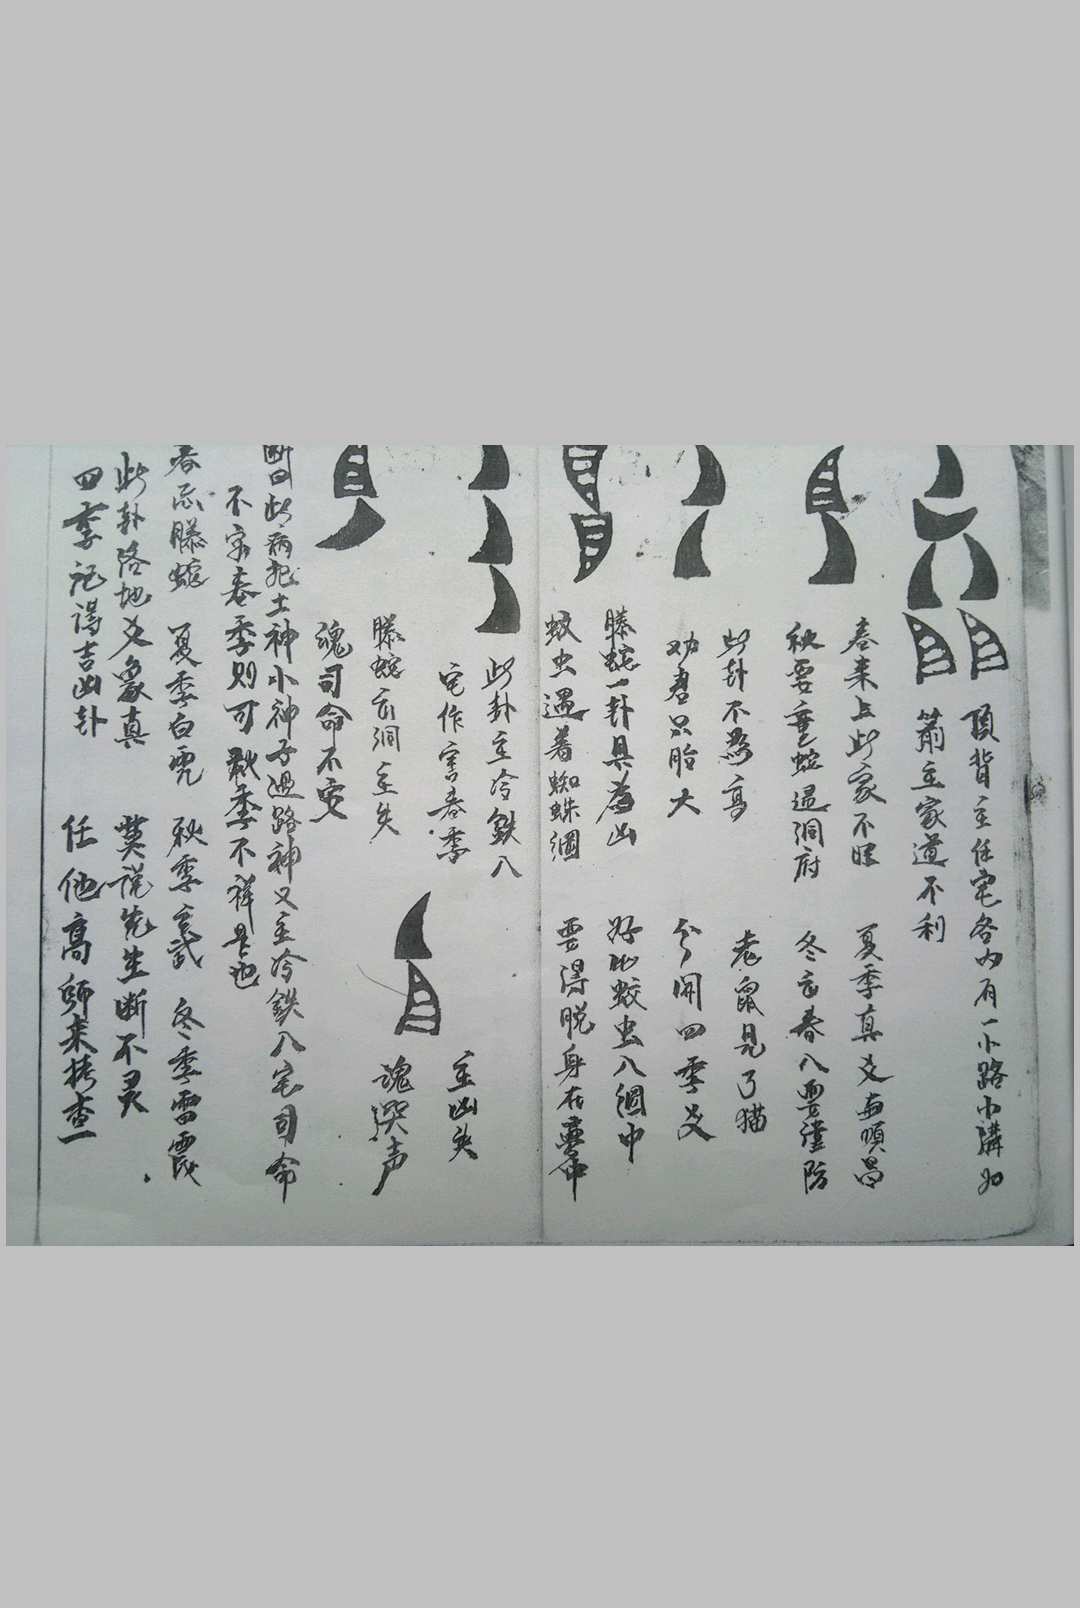 頂背主住宅各内有一小路小溝如
箭主家道不利
春来占此家不旺 夏季真爻壽順昌
秋要重蛇過洞府 冬玄春八要謹防
此卦不為高 老鼠見了猫
劝君只胎大 分開四季爻
滕蛇一卦具為凶 好比蚊虫八網中
蚊虫遇着蜘蛛網 要得脱身在夢中
此卦主冷鉄八
宅作害春季 主凶失
滕蛇玄洞主失 魂哭声
魂司命不安
断曰此病犯土神小神子過路神又主冷鉄八宅司命
不安春季则可秋季不祥是也
春忌滕蛇 夏季白虎 秋季玄武 冬季雷霆
此卦落地爻象真 莫说先生断不灵
四季记得吉凶卦 任他高師来持查